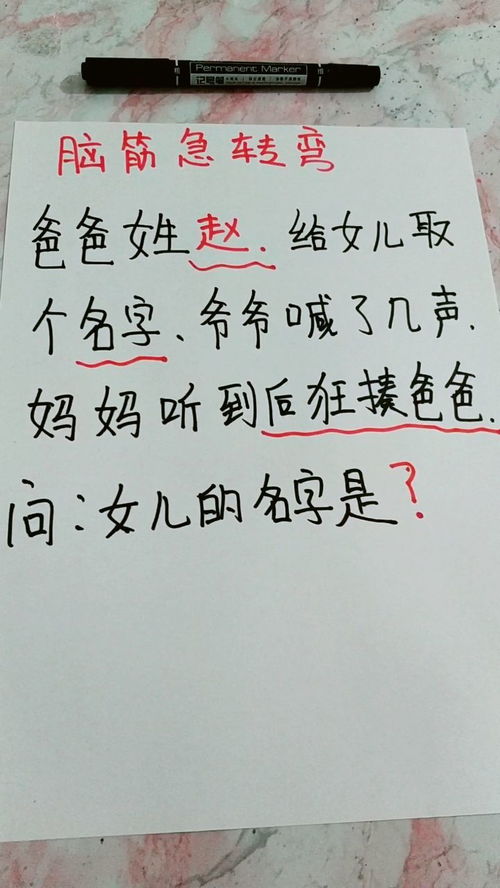 Permanent Marker
记号笔
脑筋急转弯
爸爸姓赵.给女儿取
个名字、爷爷喊了几声.
妈妈听到后狂揍爸爸.
问:女儿的名字是?